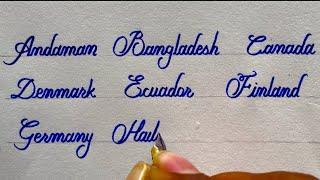 Andaman Bangladesh Canada
Denmark Ecuador Finland
Germany Hail